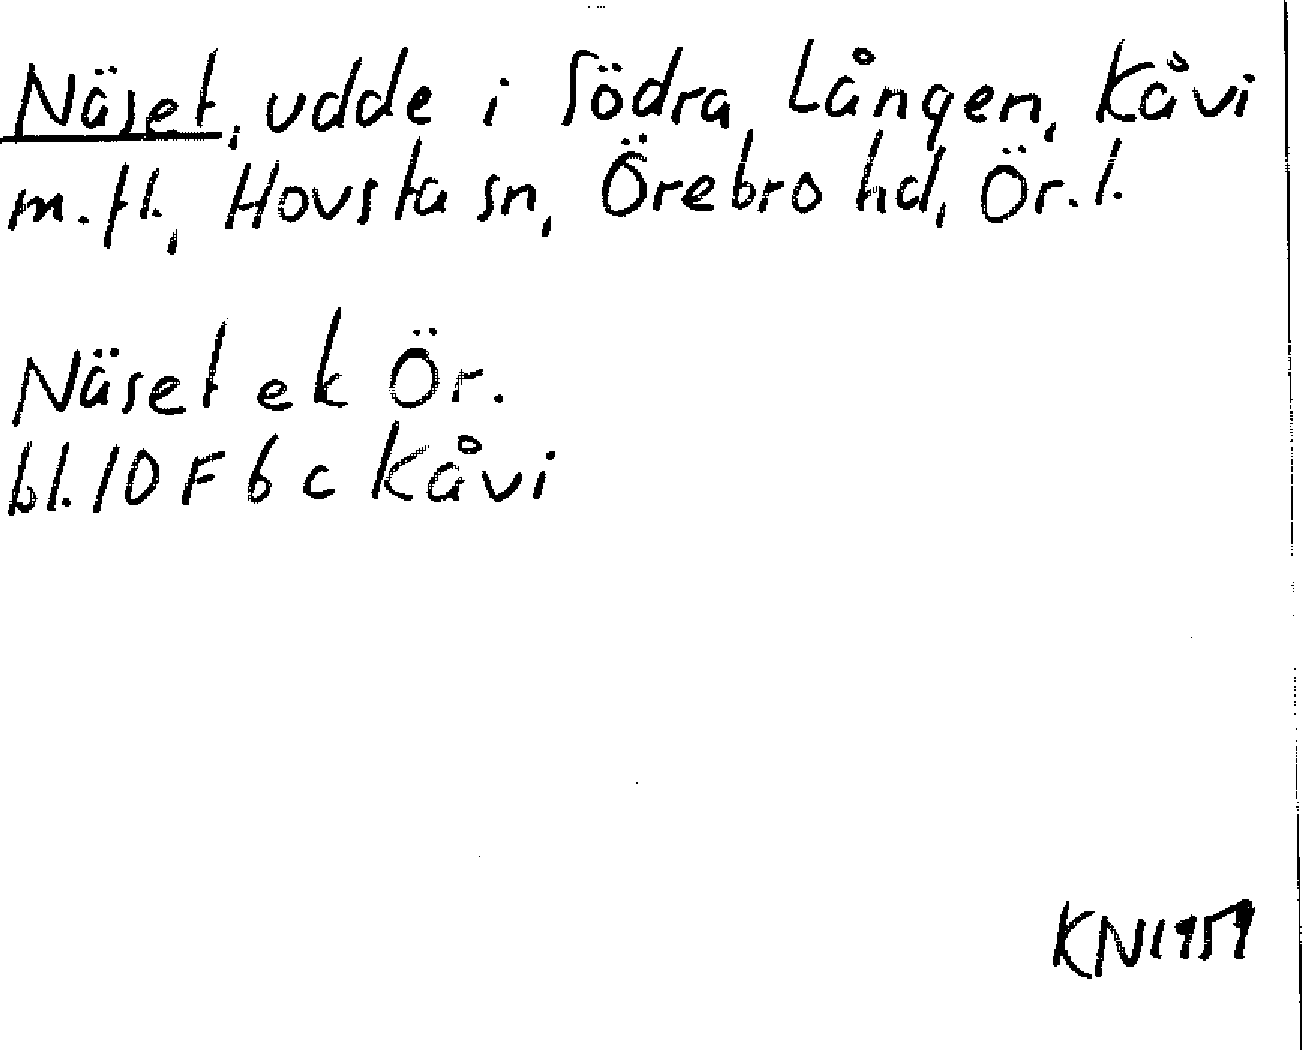 Näset, udde i Södra Lången, Kåvi
m.fl., Hovsta sn, Örebro hd, Ör.l.
Näset ek Ör.
bl. 10 F 6 c Kåvi
KN 1959